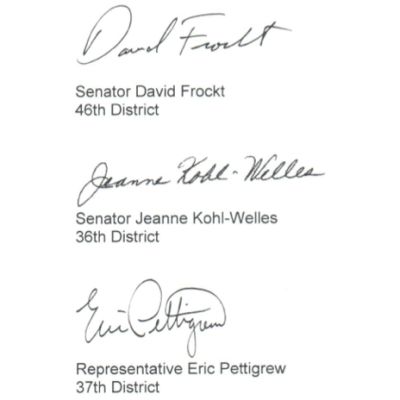 David Frockt
Senator David Frockt
46th District
Jeanne Kohl-Welles
Senator Jeanne Kohl-Welles
36th District
Eric Pettigrew
Representative Eric Pettigrew
37th District